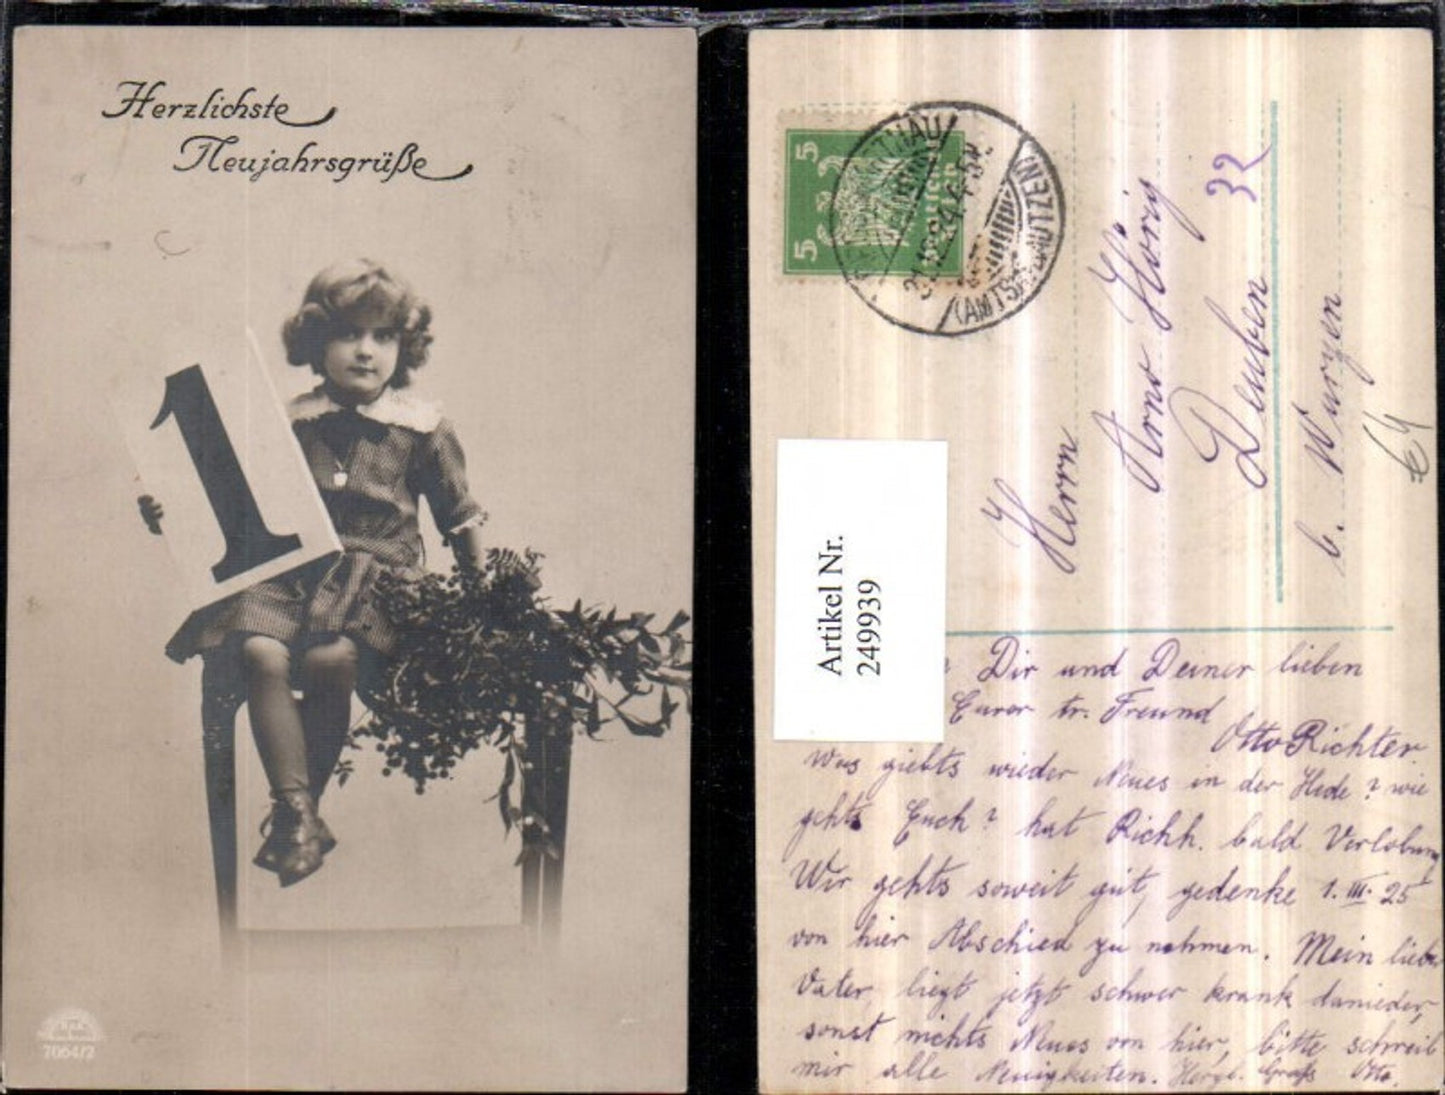 Herzlichste
Neujahrsgrüße
1
7064/2
5
5
31.12.24.4-5N.
(AMTSH. BAUTZEN)
32
Herrn
Arno Hörig
Deuben
b. Wurzen
€4
Artikel Nr.
249939
Dir und Deiner lieben
Eurer tr. Freund
Otto Richter.
Was giebts wieder Neues in der Hede? wie
gehts Euch? hat Richh. bald Verlobung
Wir gehts soweit gut, gedenke 1. III. 25
von hier Abschied zu nehmen. Mein lieber
Vater, liegt jetzt schwer krank danieder,
sonst nichts Neues von hier, bitte schreib
mir alle Neuigkeiten. Herzl. Gruß Otto.